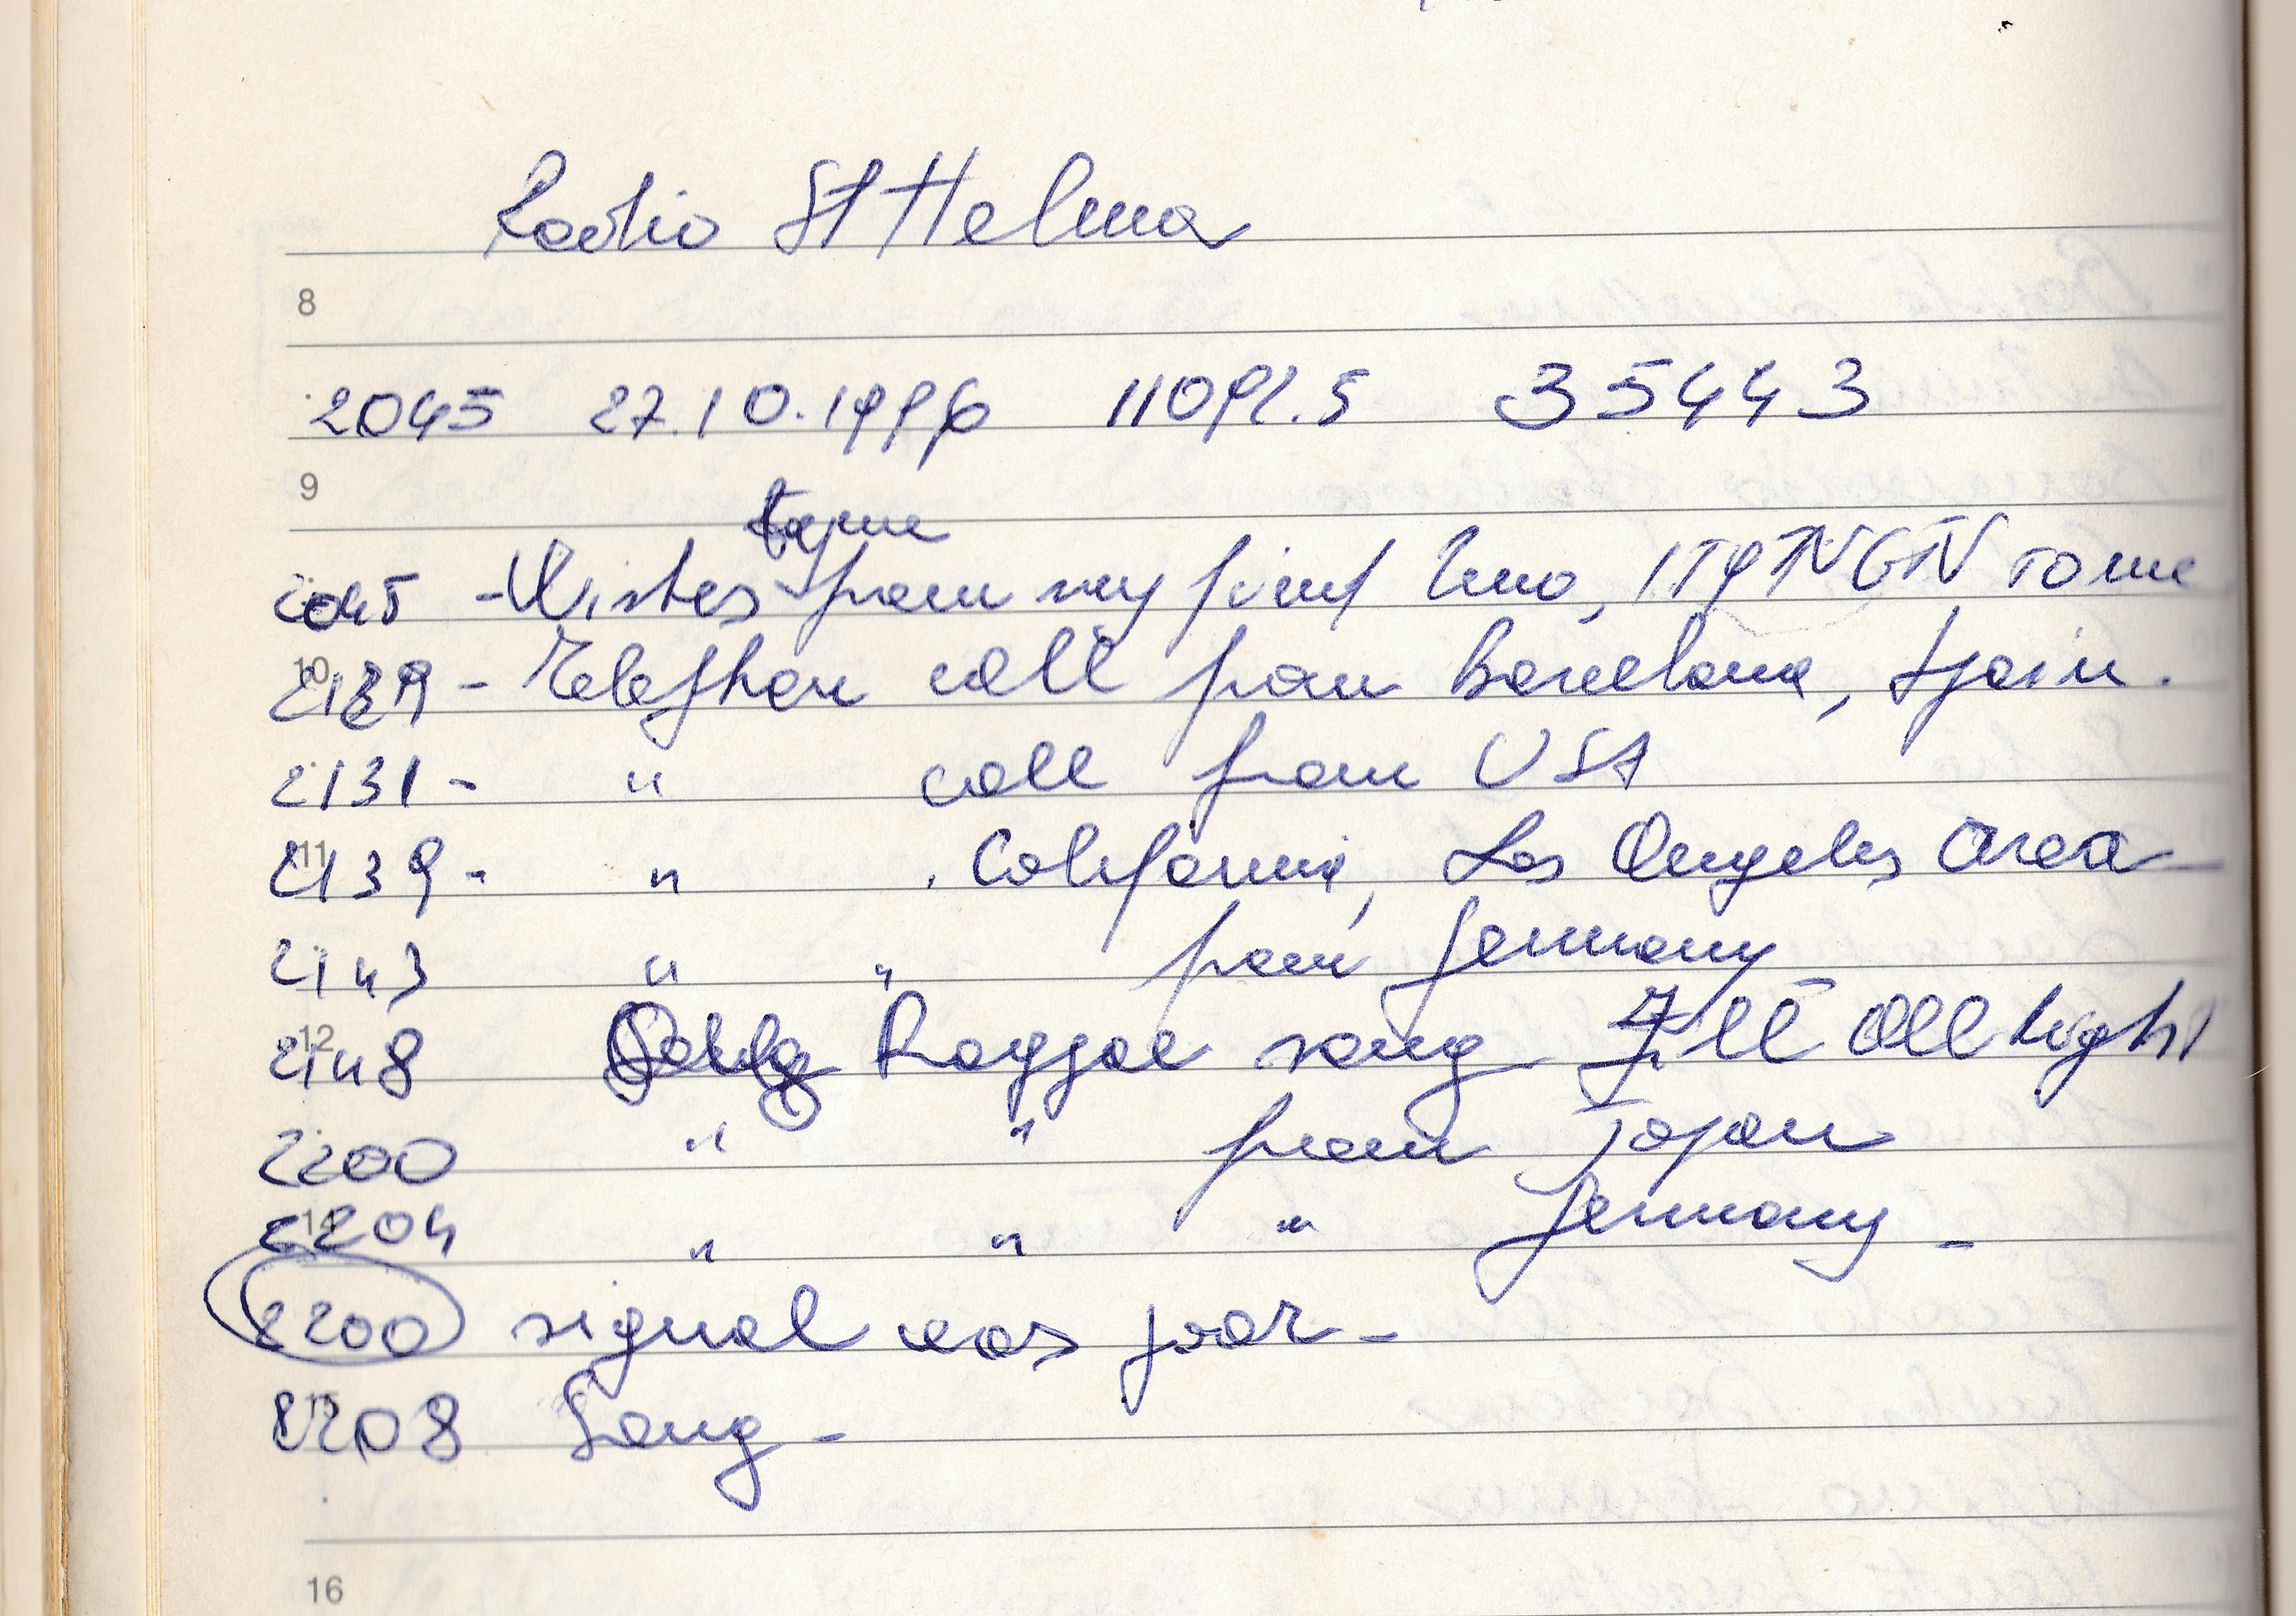 Radio St Helena
8
2045 27.10.1996 11092.5 35443
9
tapne
2045 - Wishes from my frind Enno, ITALY to me
10
2129 - Telefhon call from Barcelona, Spain.
2131 - " call from USA
11
2139 - " . California, Los Angeles area -
2143 " " from Germany -
12
2148 Raggae song I'll All Right
2200 " " from Japan
14
2204 " " " Germany -
2200 signal was poor -
15
2208 Song -
16